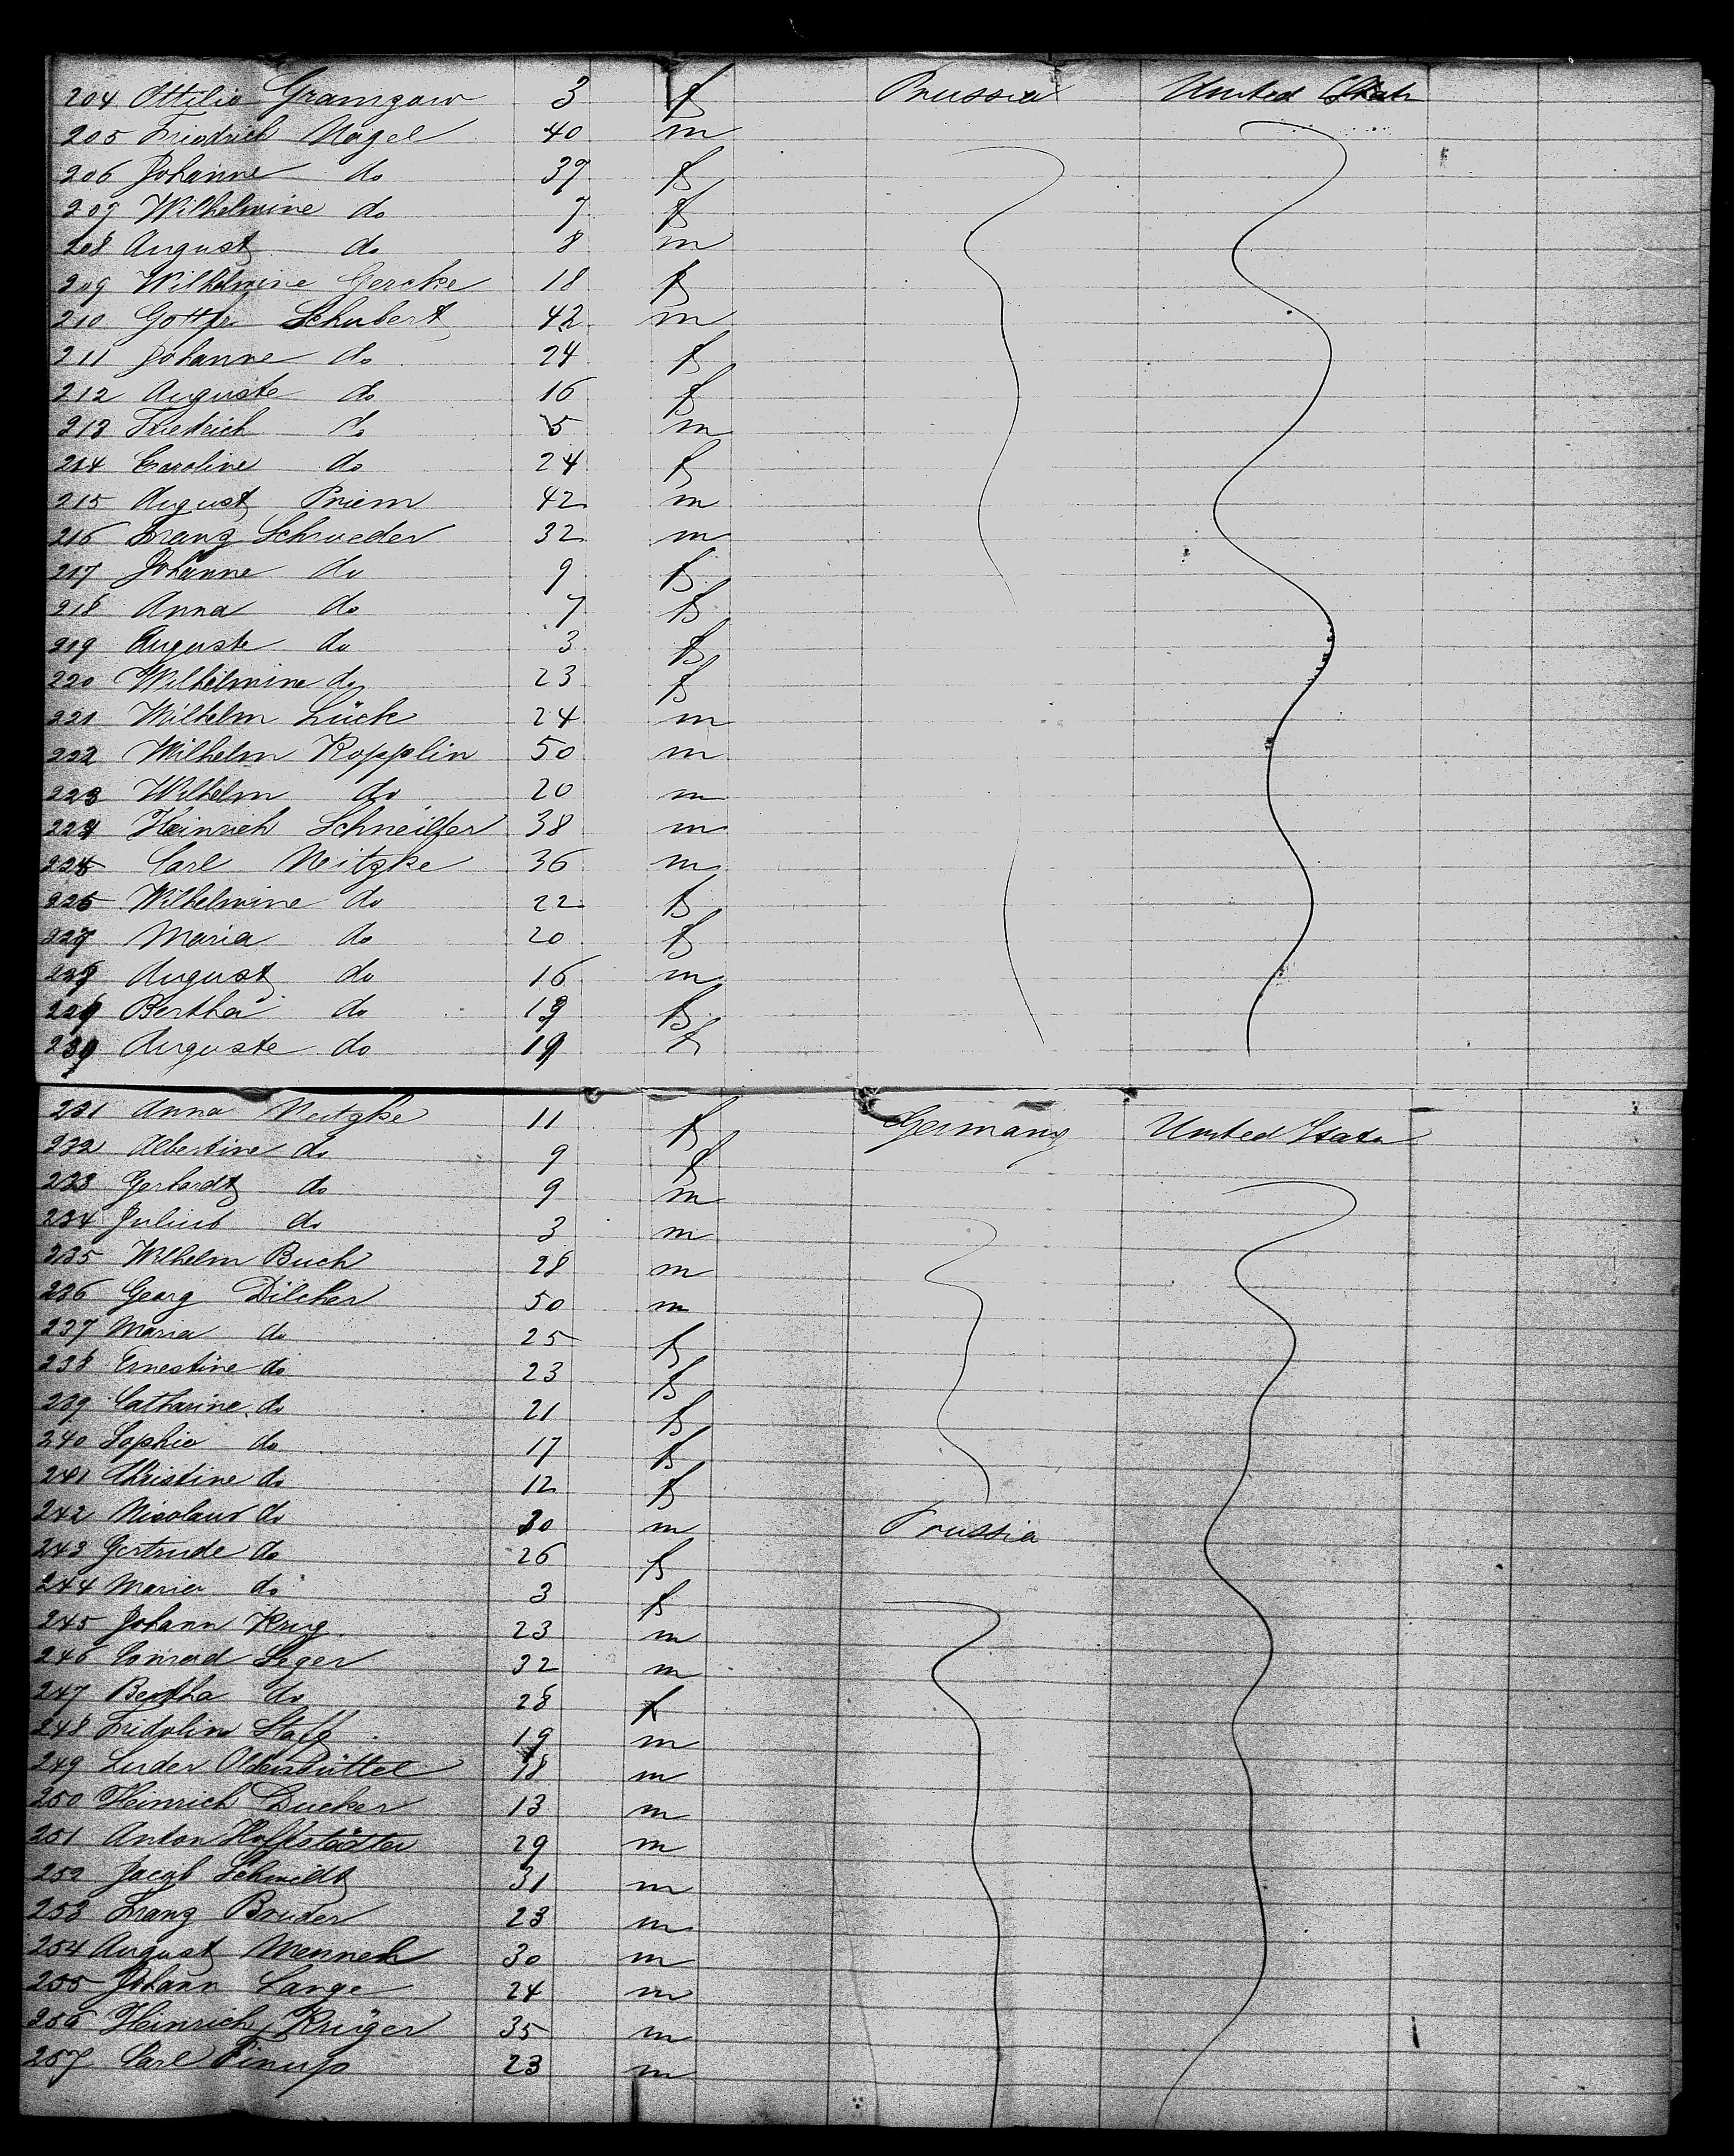 204 Ottilie Gramzow 3 f Prussia United States
205 Friedrich Nagel 40 m
206 Johanne do 37 f
207 Wilhelmine do 7 f
208 August do 8 m
209 Wilhelmine Gercke 18 f
210 Gottfr. Schubert 42 m
211 Johanne do 24 f
212 Auguste do 16 f
213 Friedrich do 5 m
214 Caroline do 24 f
215 August Priem 42 m
216 Franz Schroeder 32 m
217 Johanne do 9 f
218 Anna do 7 f
219 Auguste do 3 f
220 Wilhelmine do 23 f
221 Wilhelm Lück 24 m
222 Wilhelm Kopplin 50 m
223 Wilhelm do 20 m
224 Heinrich 38 m
225 Carl Neitzke 36 m
226 Wilhelmine do 22 f
227 Maria do 20 f
228 August do 16 m
229 Bertha do f
230 Auguste do 19 f
231 Anna Neitzke 11 f Germany United States
232 Albertine do 9 f
233 Gerhardt do 9 m
234 Julius do 3 m
235 Wilhelm Buch 28 m
236 Georg Dilcher 50 m
237 Maria do 25 f
238 Ernestine do 23 f
239 Catharine do 21 f
240 Sophie do 17 f
241 Christine do 12 f
242 Nicolaus do 30 m Prussia
243 Gertrude do 26 f
244 Maria do 3 f
245 Johann Krug 23 m
246 Conrad Seger 32 m
247 Bertha do 28 f
248 Fridolin 19 m
249 Luder Oldenbüttel 18 m
250 Heinrich Ducker 13 m
251 Anton Hoffstädter 29 m
252 Jacob Schmidt 31 m
253 Franz Bruder 23 m
254 August Mennech 30 m
255 Johann Lange 24 m
256 Heinrich Krüger 35 m
257 Carl 23 m